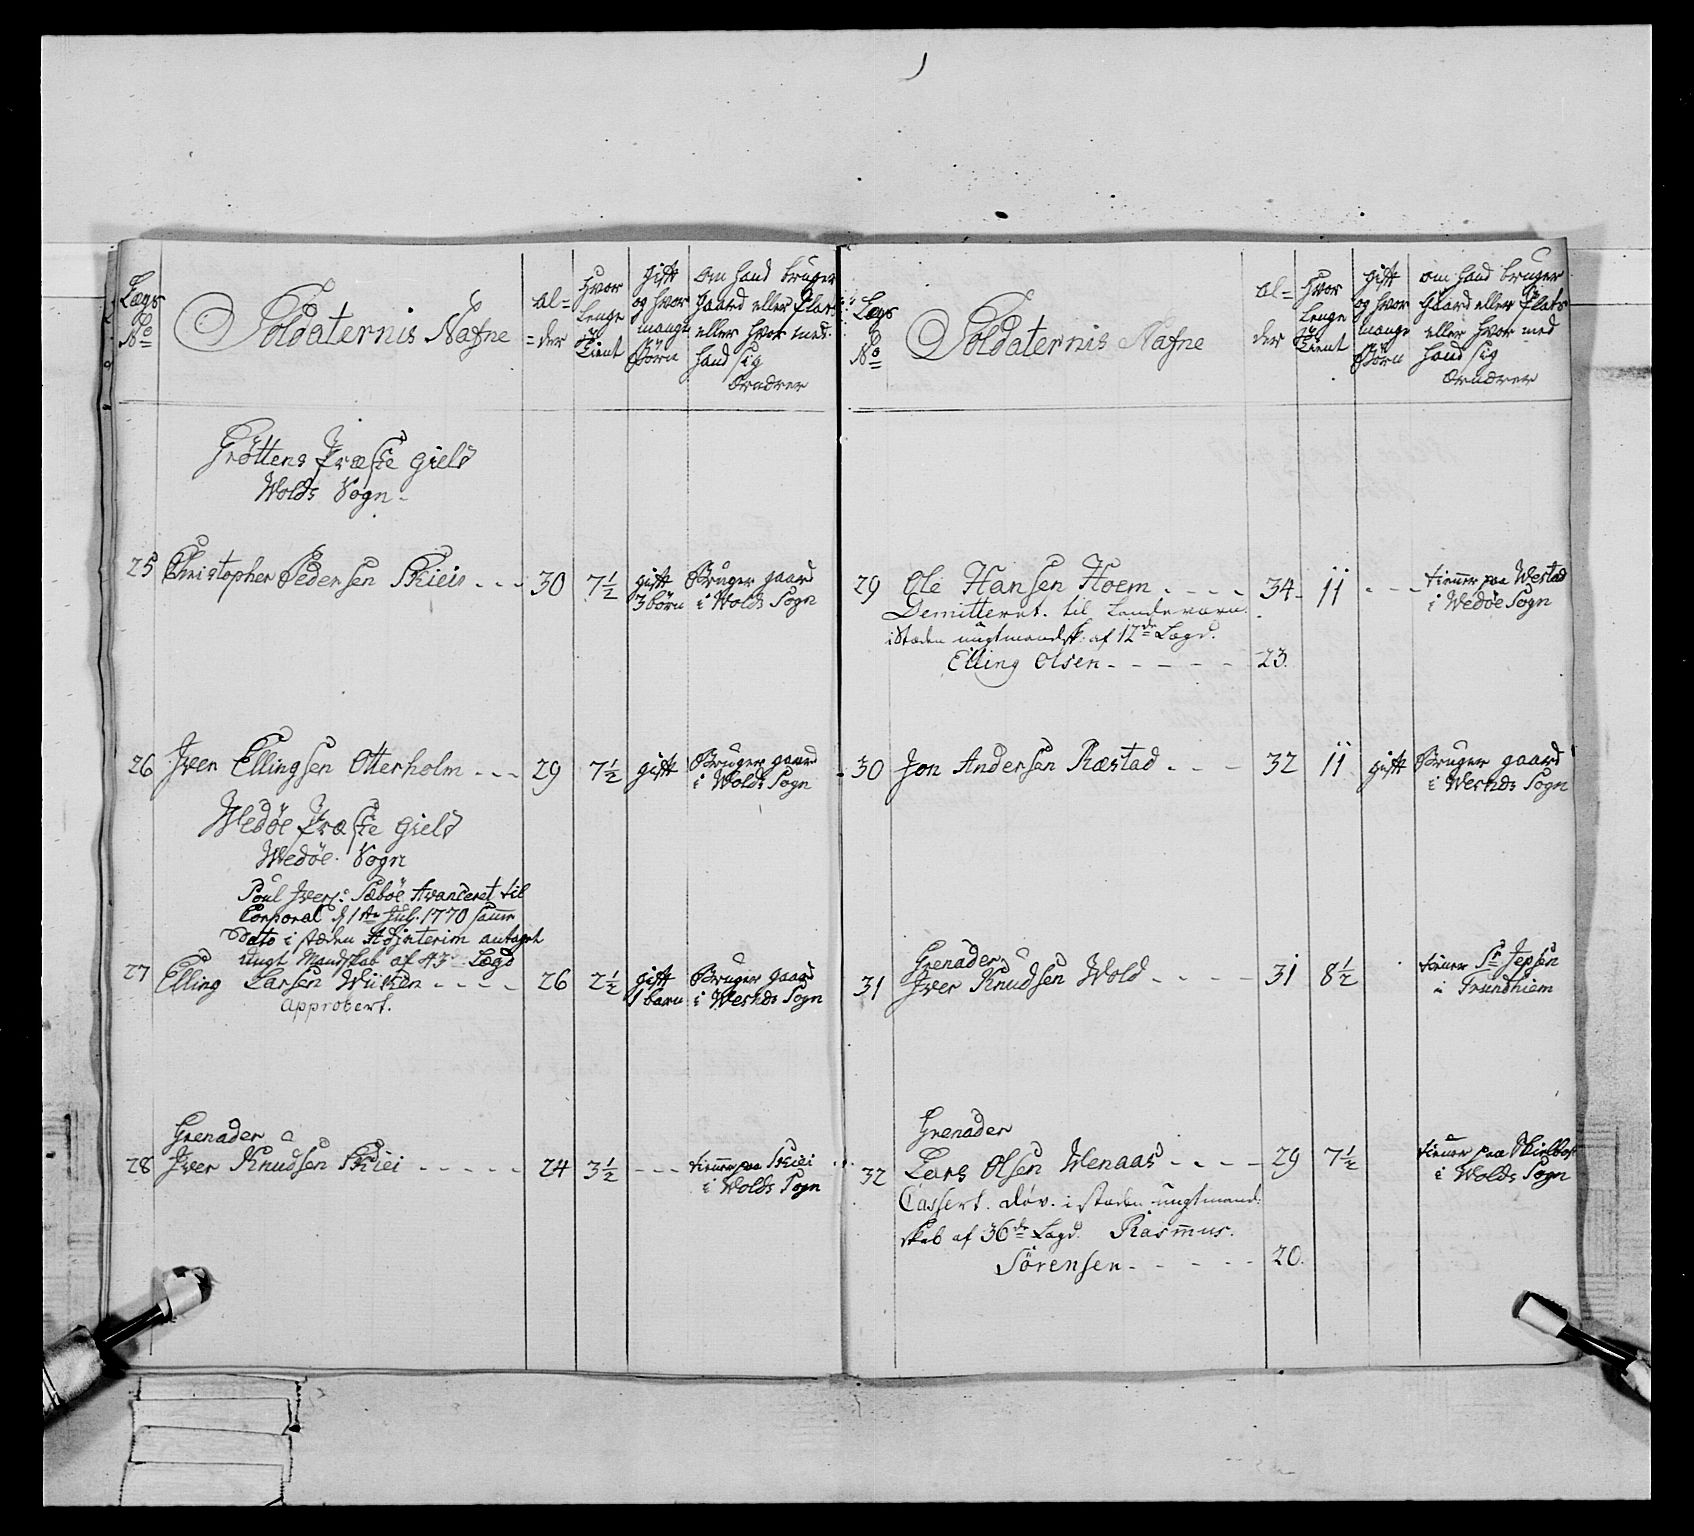 Lægs
No
Soldaternis Nafne
al=
=der
Hvor
lenge
tient
gift
og hvor
mange
Børn
om hand bruger
gaard eller Plads
eller hvor med
hand sig
Ernærer
Grøttens Præste gield
Wolds Sogn
25 Christopher Pedersen Skieie - - - 30 7½ gift Bruger gaard
3 børn i Wolds Sogn
26 Iver Ellingsen Otterholm - - - 29 7½ gift Bruger gaard
i Wolds Sogn
Wedøe Præste gield
Wedøe Sogn
Poul Ivers: Sæbøe Avanceret til
Corporal d 1ste July 1770 samme
Dato i stæden Ad interim antaget
ungt Mandskab af 43 Lægd
27 Elling Larsen - - - - 26 2½ gift Bruger gaard
1 barn i Sogn
approbert.
Grenader
28 Iver Knudsen Skiei - - - - - 24 3½ - - - tiener paa Skiei
i Wolds Sogn
Lægs
No
Soldaternis Nafne
al=
der
Hvor
lenge
tient
gift
og hvor
mange
Børn
om hand bruger
gaard eller Plads
eller hvor med
hand sig
Ernærer
29 Ole Hansen Hoem - - - - 34 - 11 - - - tiener paa Westad
i Wedøe Sogn
Demitteret til Landeværn
i stæden ungtmandsk: af 12de Lægd.
Elling Olsen - - - - - 23.
30 Jon Andersen Ræstad - - - 32 11 gift Bruger gaard
i Sogn
Grenader
31 Iver Knudsen Wold - - - - 31 8½ tiener Sr Jepsen
i Trundhiem
Grenader
32 Lars Olsen Wenaas - - - - 29 7½ tiener paa
i Wolds Sogn
Cassert. døv. i stæden ungtmand:
skab af 36de Lægd. Rasmus.
Sörensen - - - - - 20.